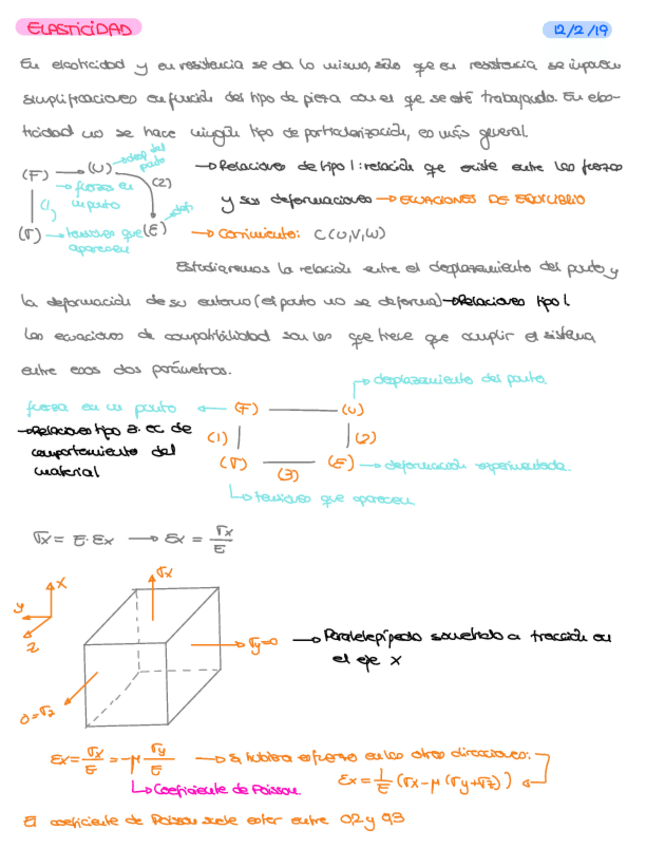 ELASTICIDAD
12/2/19
En elasticidad y en resistencia se da lo mismo, sólo que en resistencia se imponen
simplificaciones en función del tipo de pieza con el que se esté trabajando. En elas-
ticidad no se hace ningún tipo de particularización, es más general.
(F) → (U) → desp del punto
→ fuerza en un punto
(1) (2)
(σ) → tensiones que aparecen
(ε) def.
→ Relaciones de tipo 1: relación que existe entre las fuerzas
y sus deformaciones → ECUACIONES DE EQUILIBRIO
→ Corrimiento: C(U,V,W)
Estudiaremos la relación entre el desplazamiento del punto y
la deformación de su entorno (el punto no se deforma) → Relaciones tipo 1.
Las ecuaciones de compatibilidad son las que tiene que cumplir el sistema
entre esos dos parámetros.
→ desplazamiento del punto.
fuerza en un punto ← (F) — (U)
→ Relaciones tipo 3: ec de
comportamiento del
material
(1) (2)
(σ) — (ε) → deformación experimentada.
(3)
→ tensiones que aparecen.
σx = E·εx → εx = σx/E
x
y
z
σx
σy=0
0=σz
→ Paralelepípedo sometido a tracción en
el eje x
εx = σx/E = -μ σy/E → Si hubiera esfuerzo en las otras direcciones:
→ Coeficiente de Poisson.
εx = 1/E (σx-μ(σy+σz))
El coeficiente de Poisson suele estar entre 0,2 y 0,3